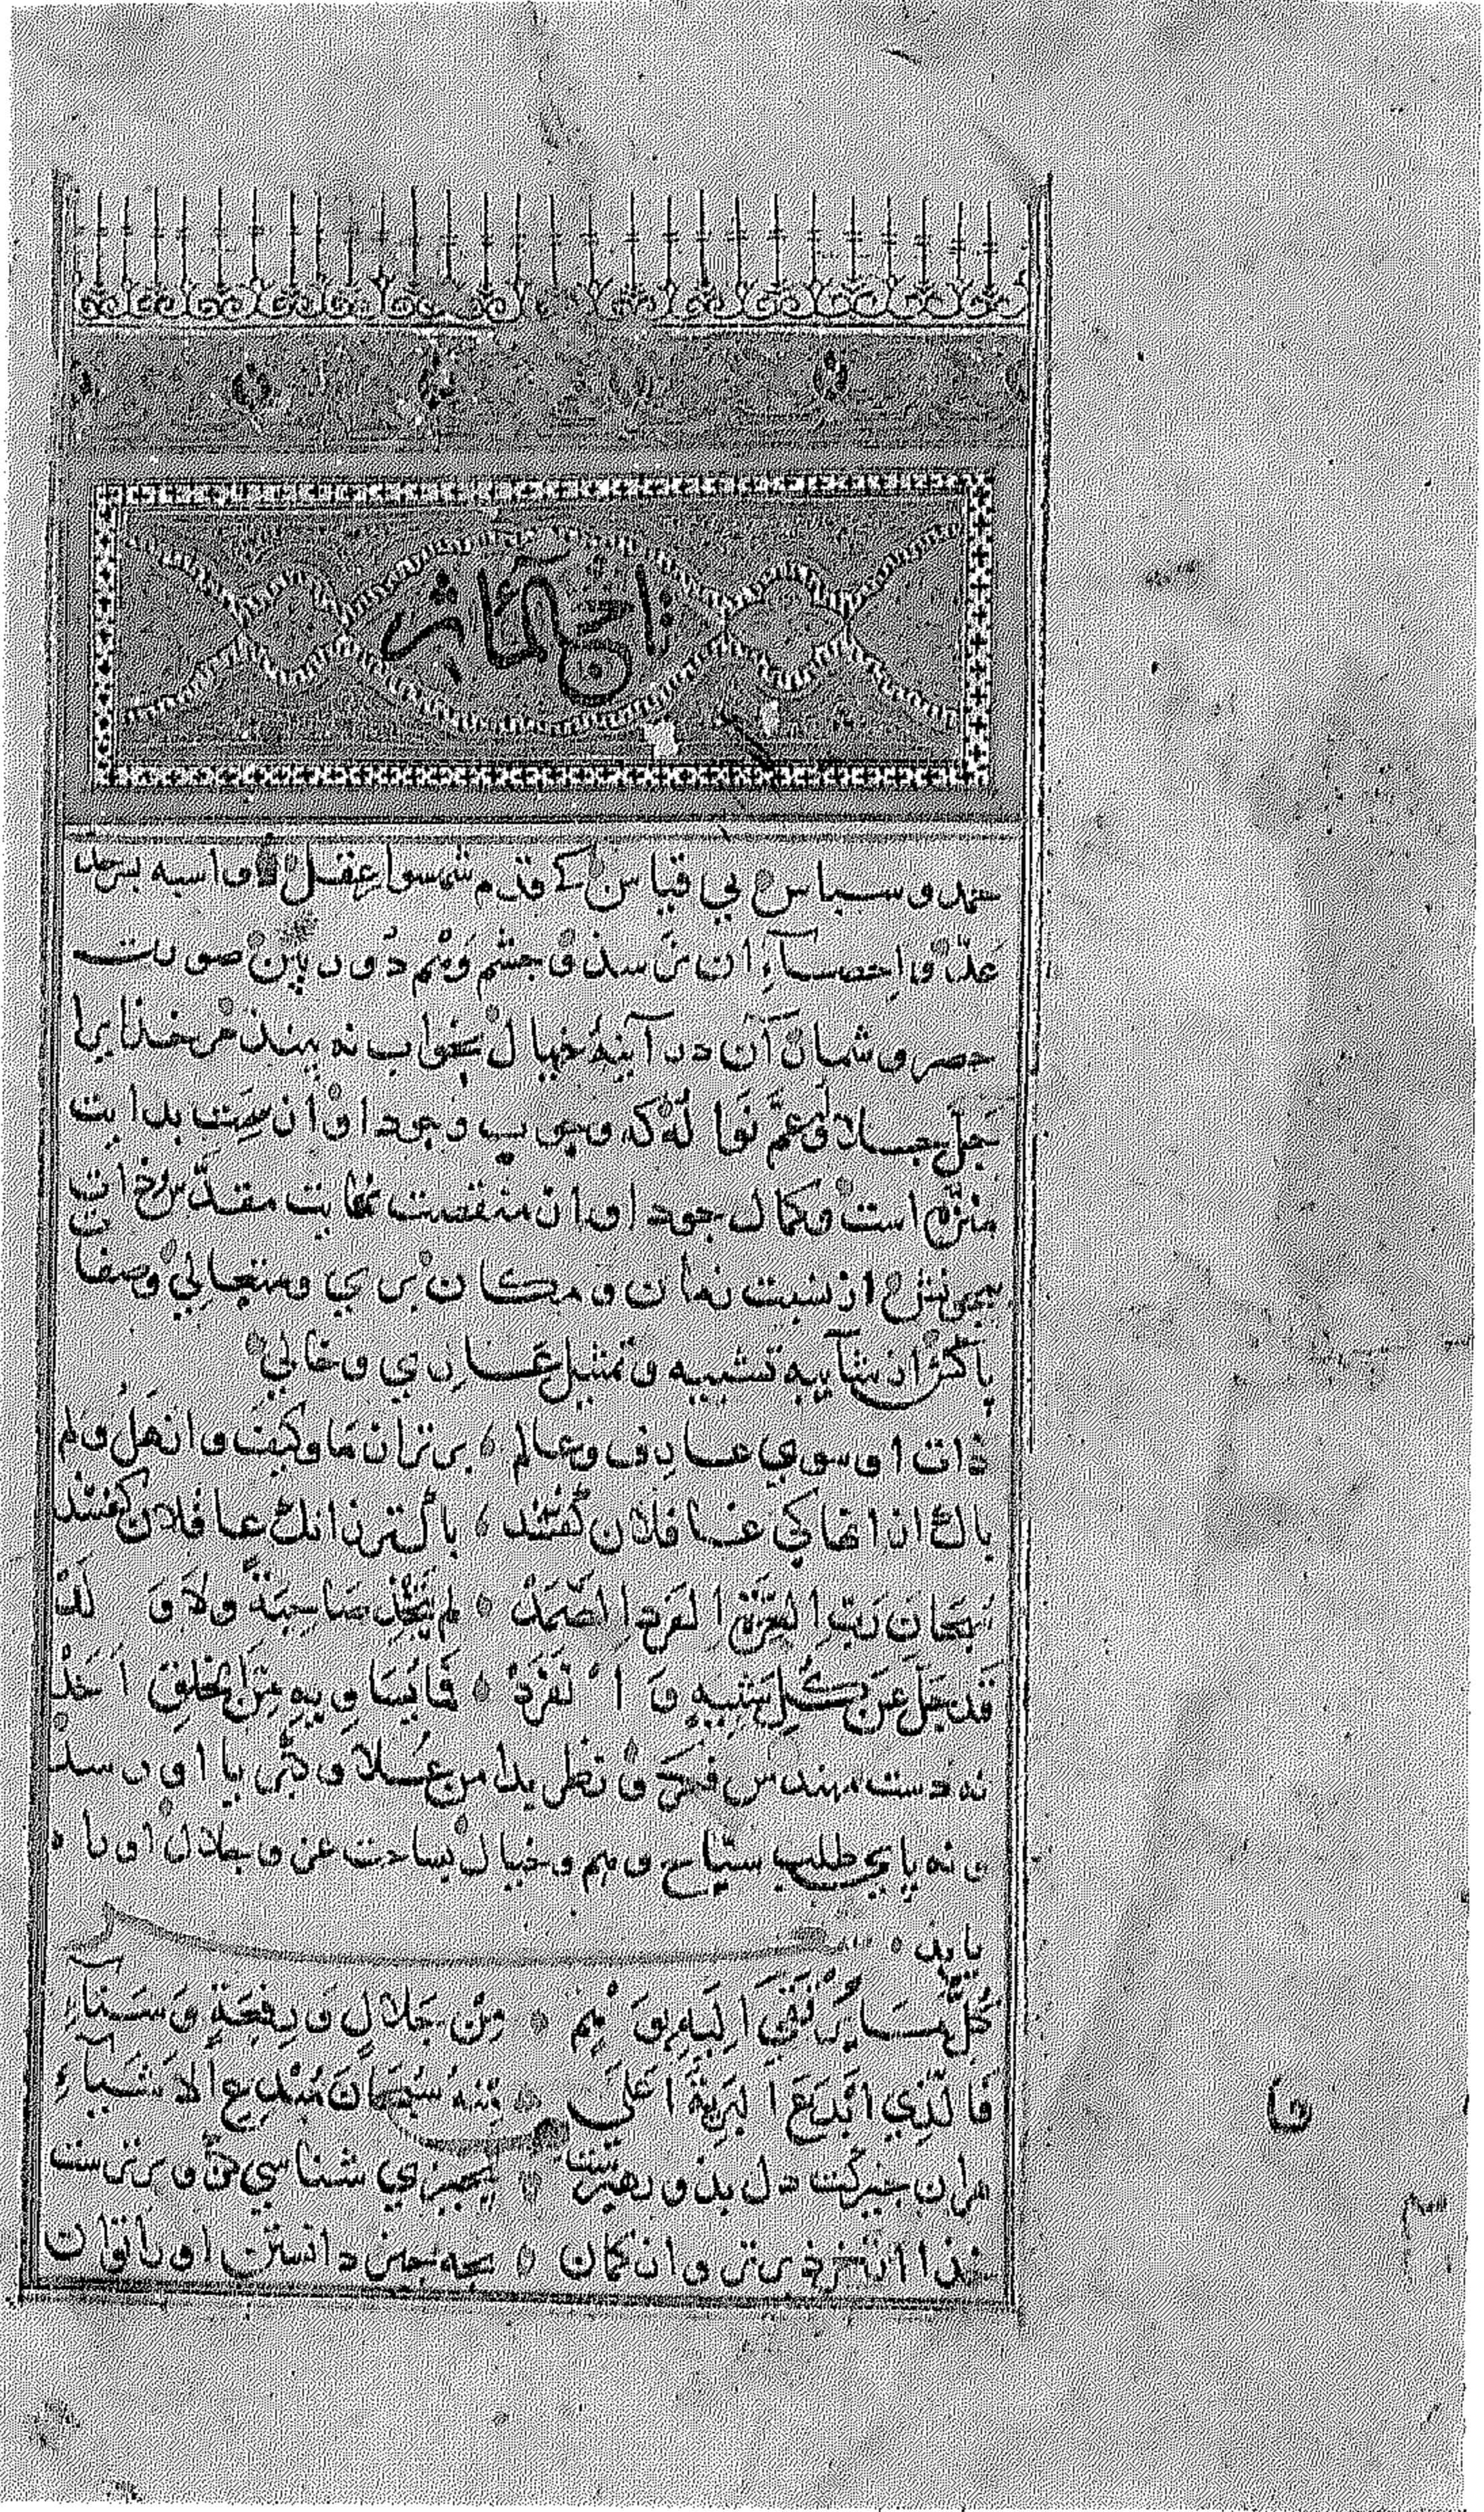 تاج المآثر
حمد و سباس بي قياس كي قدم شهسوار عقل و واسيه بسرحد
عدّ و احصآء ان نرسذ و جشم وهم دور بين صورت
حصر و شمار آن در آينهٔ خيال بخواب نه بينذ مر خذايرا
جلّ جلاله و عمّ نواله كه وجوب وجود او از سمت بدايت
منزّه است و كمال جود او از منقصت نهايت مقدّس و ذات
بيجونش از نسبت زمان و مكان بري و متعالي و صفات
پاكش از شآيبه تشبيه و تمثيل عاري و خالي
ذات او سوي عارف و عالم برتر از ما و كيف و از هل و لم
باك از انها كي غافلان گفتند باكتر زانك عاقلان گفتند
سُبحَانَ رَبّ العِزّةِ الفَردِ الصَّمَدْ لم يتّخِذ صَاحِبَةً وَلاَ وَلَدْ
قَد جَلّ عَن كُلِّ شَبِيهٍ وَانْفَرَدْ فَمَا يُسَاوِيهِ مِنَ الخَلقِ اَحَدْ
نه دست مهندس فكر و نظر بدامن علا و كبريا او رسذ
و نه پاي طلب سيّاح وهم و خيال بساحت عز و جلال او راه
يابذ
كُلّ مَا يَرتَقي اِلَيهِ بِوَهْمٍ مِنْ جَلالٍ وَرِفعَةٍ وَسَنآءِ
فَالّذِي اَبْدَعَ البَرِيّةَ اَعْلَى مِنهُ سُبْحَانَ مُبْدِعِ الاَشيآءِ
هران جيز كت دل بذو رهبرست بجيزي شناسي كزو برترست
خذا از خرذ برتر و از گمان بجه جيز دانستن او را توان
و